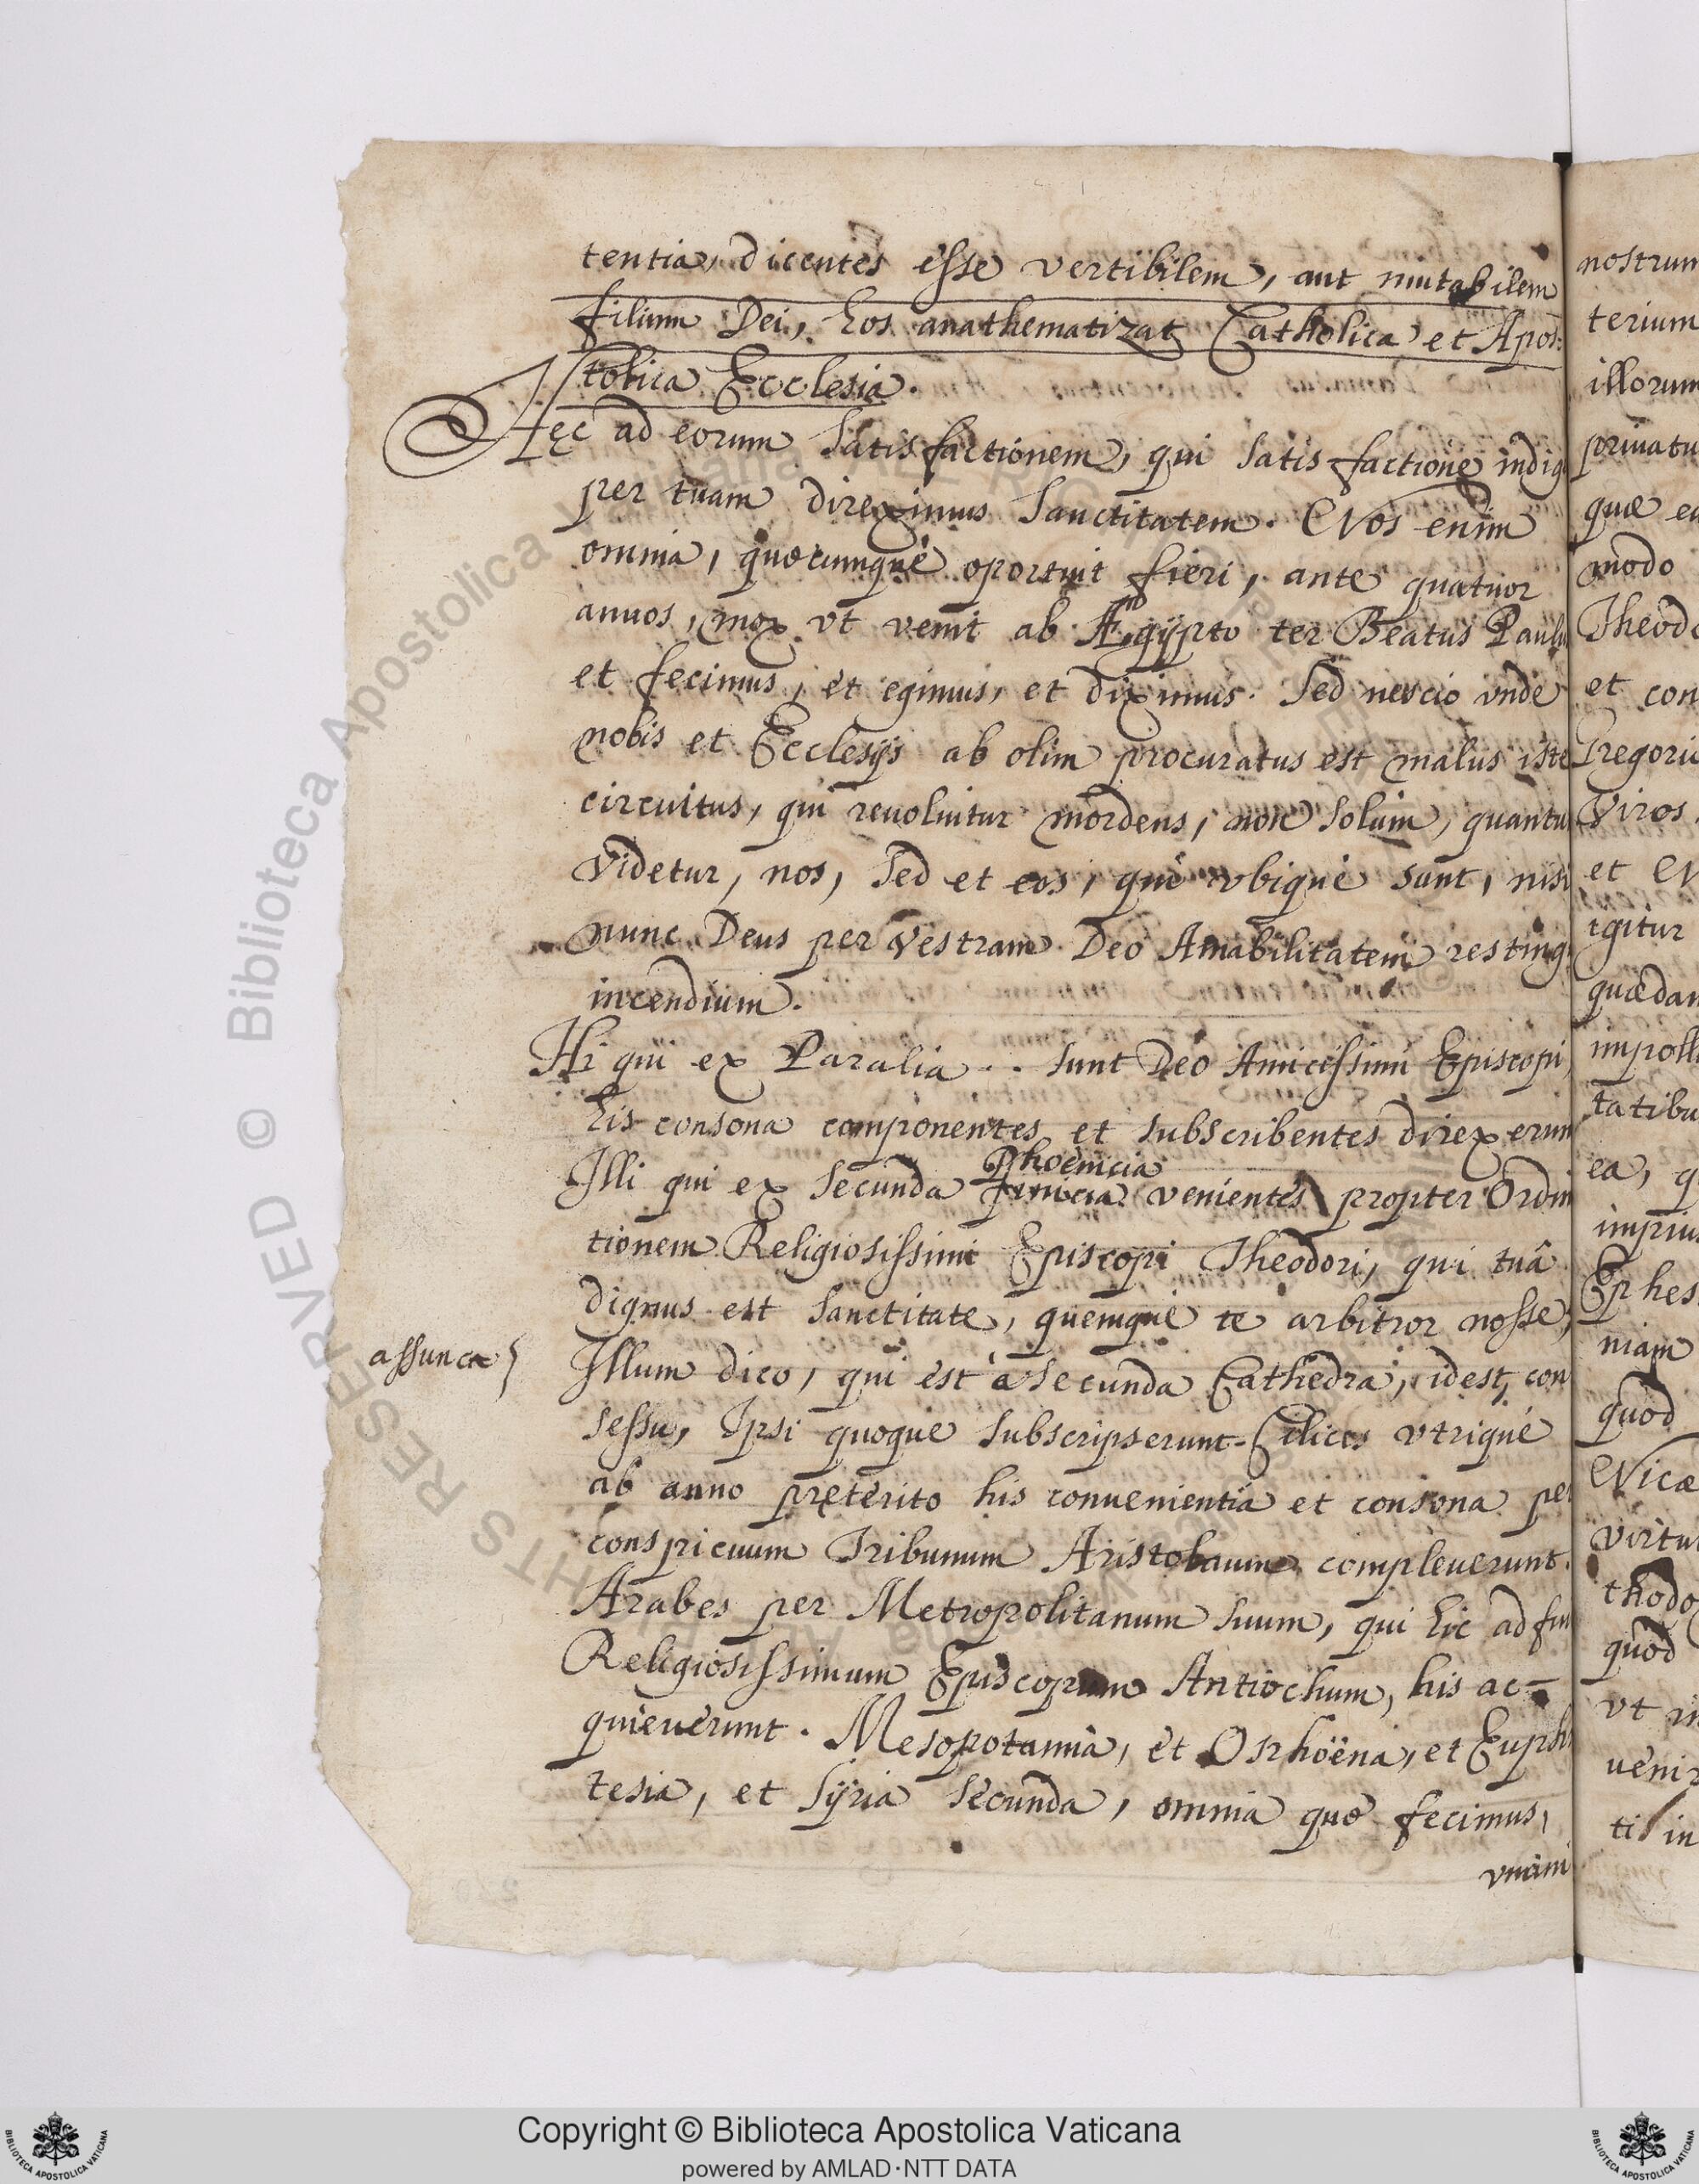 tentia, dicentes esse vertibilem, aut mutabilem
filium Dei, hos anathematizat Catholica et Apos:
tolica Ecclesia.
Hęc ad eorum satisfactionem, qui satisfactione indig
per tuam direximus Sanctitatem. Nos enim
omnia, quęcumque oportuit fieri, ante quatuor
annos, mox vt venit ab Ægÿpto ter Beatus Paulu
et fecimus, et egimus, et diximus. Sed nescio vnde
nobis et Ecclesijs ab olim procuratus est malus iste
circuitus, qui reuoluitur mordens, non solùm, quantu
videtur, nos, sed et eos, qui vbique sunt, nisi
nunc Deus per vestram Deo Amabilitatem resting
incendium.
Hi qui ex Paralia .. sunt Deo Amicissimi Episcopi,
his consona componentes et subscribentes direxerun
Phoenicia
Illi qui ex secunda venientes propter Ordin
tionem Religiosissimi Episcopi Theodori, qui tuâ
dignus est Sanctitate, quemque te arbitror nosse,
assunca
Illum dico, qui est à secunda Cathedra, idest, con
sessu, Ipsi quoque subscripserunt. Cilices vtrique
ab anno pręterito his conuenientia et consona per
conspicuum Tribunum Aristolaum compleuerunt.
Arabes per Metropolitanum suum, qui hic adfui
Religiosissimum Episcopum Antiochum, his ac-
quieuerunt. Mesopotamia, et Osrhoëna, et Euphr
tesia, et Sÿria secunda, omnia quę fecimus,
vnani
nostrum
terium
illorum
priuatu
quæ ea
modo
Theodo
et con
Gregori
Viros
et N
igitur
quædam
impoll
tatibu
ea, q
impiu
Ephes
niam
quod
Nicæ
virtu
thodo
quod
vt in
venir
ti in
© Biblioteca Apostolica Vaticana
RIGHTS RESERVED
Copyright © Biblioteca Apostolica Vaticana
powered by AMLAD·NTT DATA
BIBLIOTECA APOSTOLICA VATICANA
BIBLIOTECA APOSTOLICA VATICANA